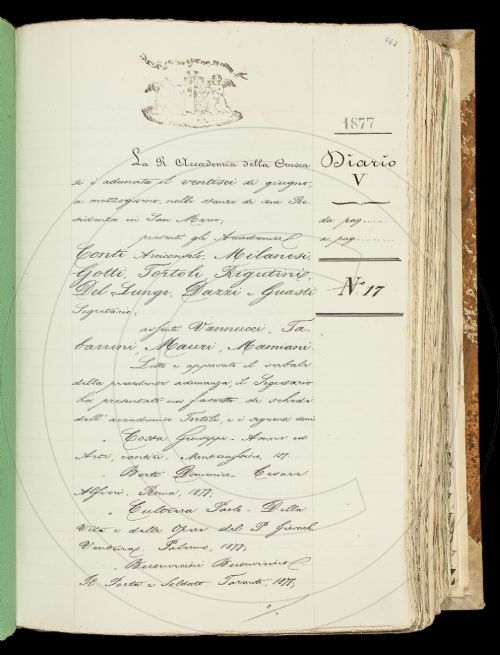 443
1877
Diario
V
da pag.
a pag.
N. 17
La R. Accademia della Crusca
si è adunata il ventisei di giugno,
a mezzogiorno, nelle stanze di sua Re-
sidenza in San Marco,
presenti gli Accademici
Conti Arciconsolo, Milanesi,
Gotti, Tortoli, Rigutini,
Del Lungo, Dazzi e Guasti
Segretario;
assenti Vannucci, Ta-
barrini, Mauri, Mamiani.
Letto e approvato il verbale
della precedente adunanza, il Segretario
ha presentato un fascetto di schede
dell'accademico Tortoli, e i seguenti doni
" Costa Giuseppe - Amore ed
Arte, 187
" Berti Domenico - Cesare
Alfieri. Roma, 1877;
" Paolo - Della
Vita e delle Opere del P.
Ventura. Palermo, 1877;
"
Il Poeta e Soldato Taranto, 1877;